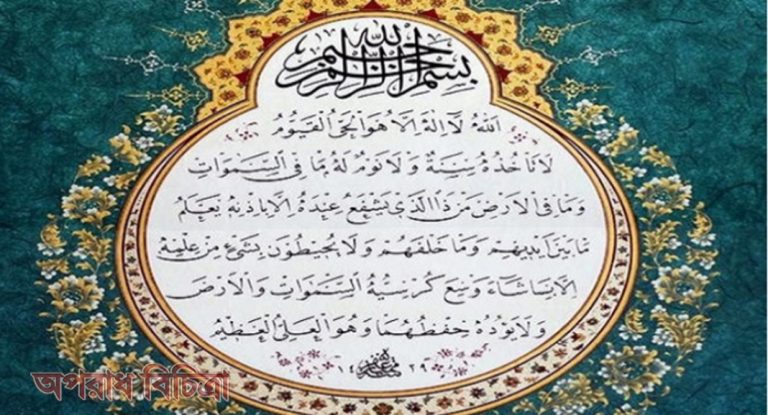 بسم الله الرحمن الرحيم
اَللهُ لَا اِلٰهَ اِلَّا هُوَ الْحَىُّ الْقَيُّومُ
لَا تَاْخُذُهُ سِنَةٌ وَلَا نَوْمٌ لَهُ مَا فِى السَّمٰوَاتِ
وَمَا فِى الْاَرْضِ مَنْ ذَا الَّذِى يَشْفَعُ عِنْدَهُ اِلَّا بِاِذْنِهِ يَعْلَمُ
مَا بَيْنَ اَيْدِيهِمْ وَمَا خَلْفَهُمْ وَلَا يُحِيطُونَ بِشَىْءٍ مِنْ عِلْمِهِ
اِلَّا بِمَا شَاءَ وَسِعَ كُرْسِيُّهُ السَّمٰوَاتِ وَالْاَرْضَ
وَلَا يَؤُدُهُ حِفْظُهُمَا وَهُوَ الْعَلِىُّ الْعَظِيمُ
১৪২৯
অপরাধ বিচিত্রা